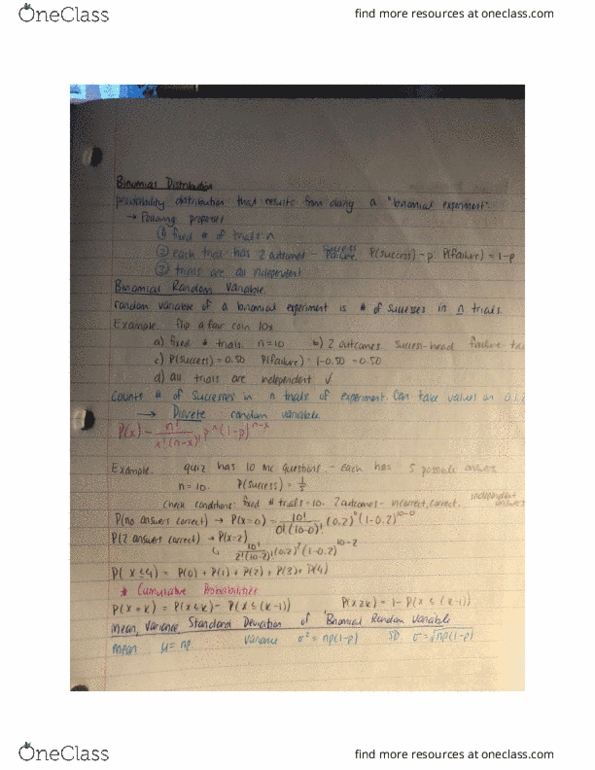 OneClass
find more resources at oneclass.com
Binomial Distribution
probability distribution that results from doing a "binomial experiment"
→ Following properties
① fixed # of trials: n
② each trial has 2 outcomes - Success Failure P(success) = p P(failure) = 1-p
③ trials are all independent
Binomial Random Variable
random variable of a binomial experiment is # of successes in n trials.
Example flip a fair coin 10x
a) fixed # trials n=10 b) 2 outcomes success-head failure
c) P(success) = 0.50 P(failure) = 1-0.50 = 0.50
d) all trials are independent ✓
Counts # of successes in n trials of experiment. Can take values on 0,1,2
→ Discrete random variable
P(x) = n!/x!(n-x)! p^x (1-p)^n-x
Example quiz has 10 mc questions - each has 5 possible answers
n=10. P(success) = 1/5
check conditions: fixed # trials=10. 2 outcomes - incorrect, correct. independent answers
P(no answers correct) → P(x=0) = 10!/0!(10-0)! (0.2)^0 (1-0.2)^10-0
P(2 answers correct) → P(x=2)
↳ 10!/2!(10-2)! (0.2)^2 (1-0.2)^10-2
P(x≤4) = P(0) + P(1) + P(2) + P(3) + P(4)
* Cumulative Probabilities
P(x=k) = P(x≤k) - P(x≤(k-1)) P(x≥k) = 1 - P(x≤(k-1))
Mean, Variance, Standard Deviation of Binomial Random Variable
mean μ=np variance σ²=np(1-p) SD σ=√np(1-p)
OneClass
find more resources at oneclass.com